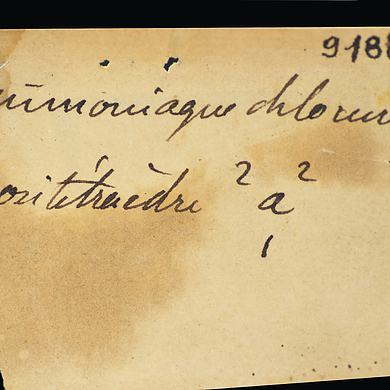 918
ummoniaque chlorur
ositétraèdre 2 a 2
1